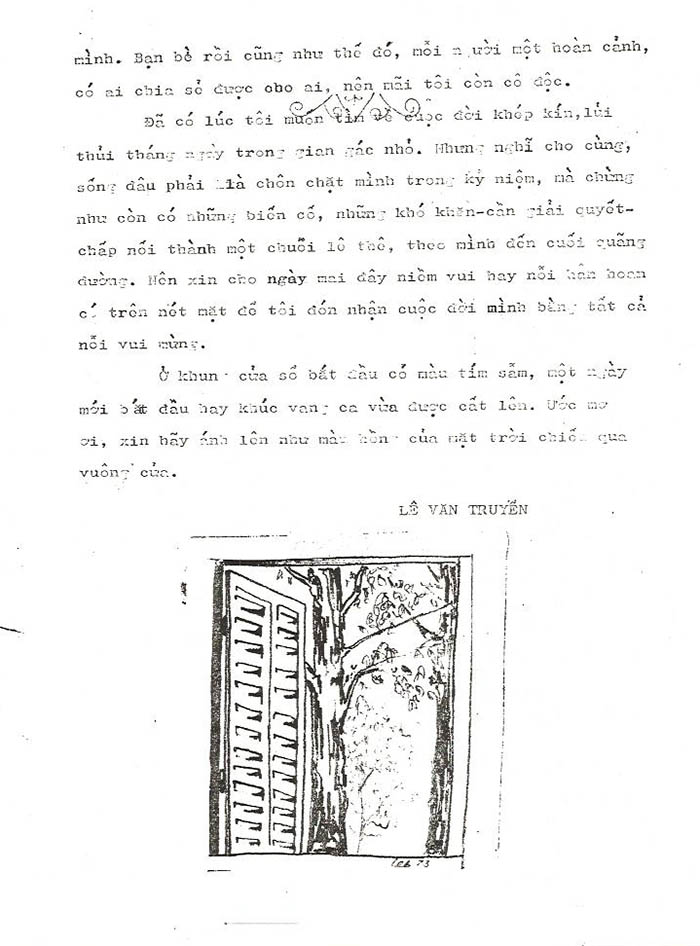 mình. Bạn bè rồi cũng như thế đó, mỗi người một hoàn cảnh,
có ai chia sẻ được cho ai, nên mãi tôi còn cô độc.
Đã có lúc tôi muốn tìm về cuộc đời khép kín,lủi
thủi tháng ngày trong gian gác nhỏ. Nhưng nghĩ cho cùng,
sống đâu phải là chôn chặt mình trong kỷ niệm, mà chừng
như còn có những biến cố, những khó khăn-cần giải quyết-
chấp nối thành một chuỗi lê thê, theo mình đến cuối quãng
đường. Nên xin cho ngày mai đây niềm vui hay nỗi hân hoan
có trên nét mặt để tôi đón nhận cuộc đời mình bằng tất cả
nỗi vui mừng.
Ở khung của sổ bắt đầu có màu tím sẫm, một ngày
mới bắt đầu hay khúc vang ca vừa được cất lên. Ước mơ
ơi, xin hãy ánh lên như màu hồng của mặt trời chiếu qua
vuông cửa.
LÊ VĂN TRUYỀN
73